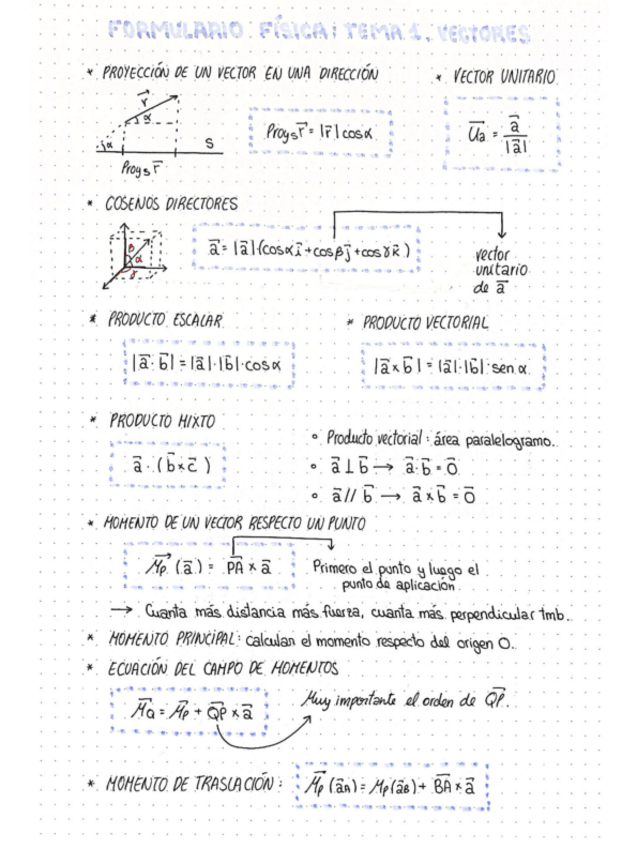 FORMULARIO FÍSICA: TEMA 1. VECTORES
* PROYECCIÓN DE UN VECTOR EN UNA DIRECCIÓN
* VECTOR UNITARIO
r⃗
α
α
S
Proy_S r⃗
Proy_S r⃗ = |r⃗| cos α
U⃗a = a⃗ / |a⃗|
* COSENOS DIRECTORES
β
α
γ
a⃗ = |a⃗|·(cos α i⃗ + cos β j⃗ + cos γ k⃗)
vector
unitario
de a⃗
* PRODUCTO ESCALAR
* PRODUCTO VECTORIAL
|a⃗·b⃗| = |a⃗|·|b⃗|·cos α
|a⃗ x b⃗| = |a⃗|·|b⃗|·sen α
* PRODUCTO MIXTO
a⃗ · (b⃗ x c⃗)
° Producto vectorial: área paralelogramo.
° a⃗ ⊥ b⃗ → a⃗·b⃗ = 0⃗
° a⃗ // b⃗ → a⃗ x b⃗ = 0⃗
* MOMENTO DE UN VECTOR RESPECTO UN PUNTO
M⃗p (a⃗) = PA⃗ x a⃗
Primero el punto y luego el
punto de aplicación
→ Cuanta más distancia más fuerza, cuanta más perpendicular tmb.
* MOMENTO PRINCIPAL: calculan el momento respecto del origen O.
* ECUACIÓN DEL CAMPO DE MOMENTOS
M⃗Q = M⃗P + QP⃗ x a⃗
Muy importante el orden de QP⃗.
* MOMENTO DE TRASLACIÓN:
M⃗p (a⃗A) = Mp(a⃗B) + BA⃗ x a⃗